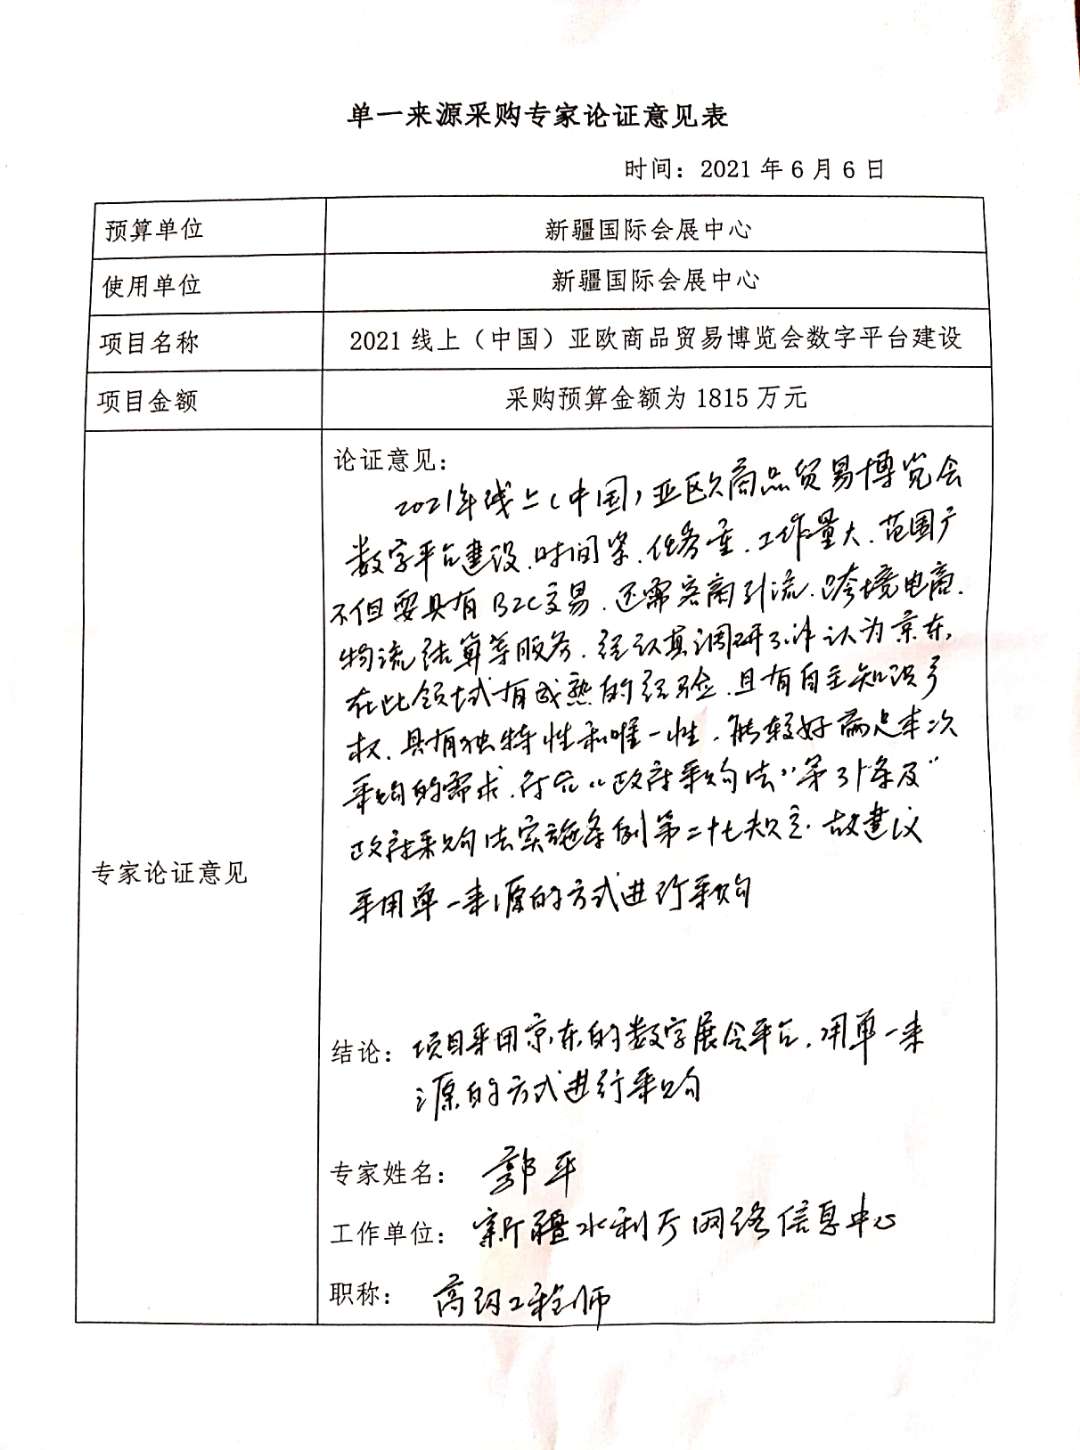 单一来源采购专家论证意见表
时间：2021 年 6 月 6 日
预算单位 新疆国际会展中心
使用单位 新疆国际会展中心
项目名称 2021 线上（中国）亚欧商品贸易博览会数字平台建设
项目金额 采购预算金额为 1815 万元
专家论证意见
论证意见：
2021年线上（中国）亚欧商品贸易博览会
数字平台建设、时间紧、任务重、工作量大、范围广
不但要具有B2C交易、还需 引流、跨境电商、
物流结算等服务、经认真调研 认为京东，
在此领域有成熟的经验、且有自主知识
权、具有独特性和唯一性、能较好满足本次
采购的需求、符合“政府采购法”第31条及“
政府采购法实施条例第二十七 定、故建议
采用单一来源的方式进行采购
结论：项目采用京东的数字展会平台，用单一来
源的方式进行采购
专家姓名：郭平
工作单位：新疆水利厅网络信息中心
职称：高级工程师